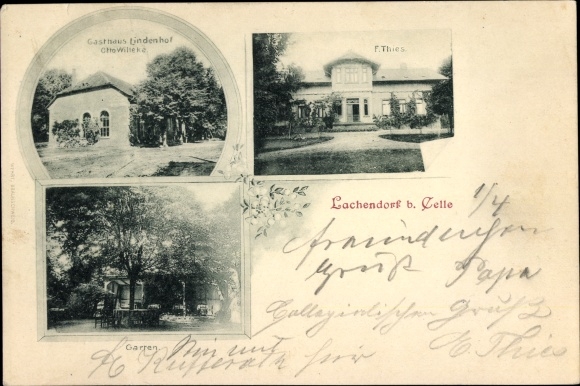 Gasthaus Lindenhof
Otto Willeke
F. Thies.
Lachendorf b. Celle
1/4
freundlichen
Gruß Papa
Collegialischen Gruß
E. Thies
Garten